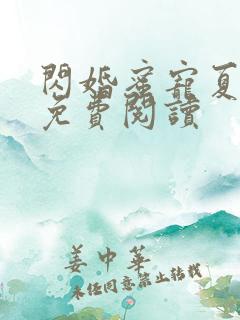 閃婚蜜寵夏
免費閱讀
姜中華
未經同意禁止轉載